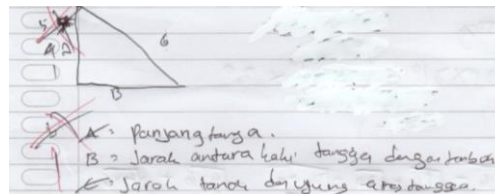 6
B
A = Panjang tangga.
B = Jarak antara kaki tangga dengan tembok
C = Jarak tanah dan ujung atas tangga.